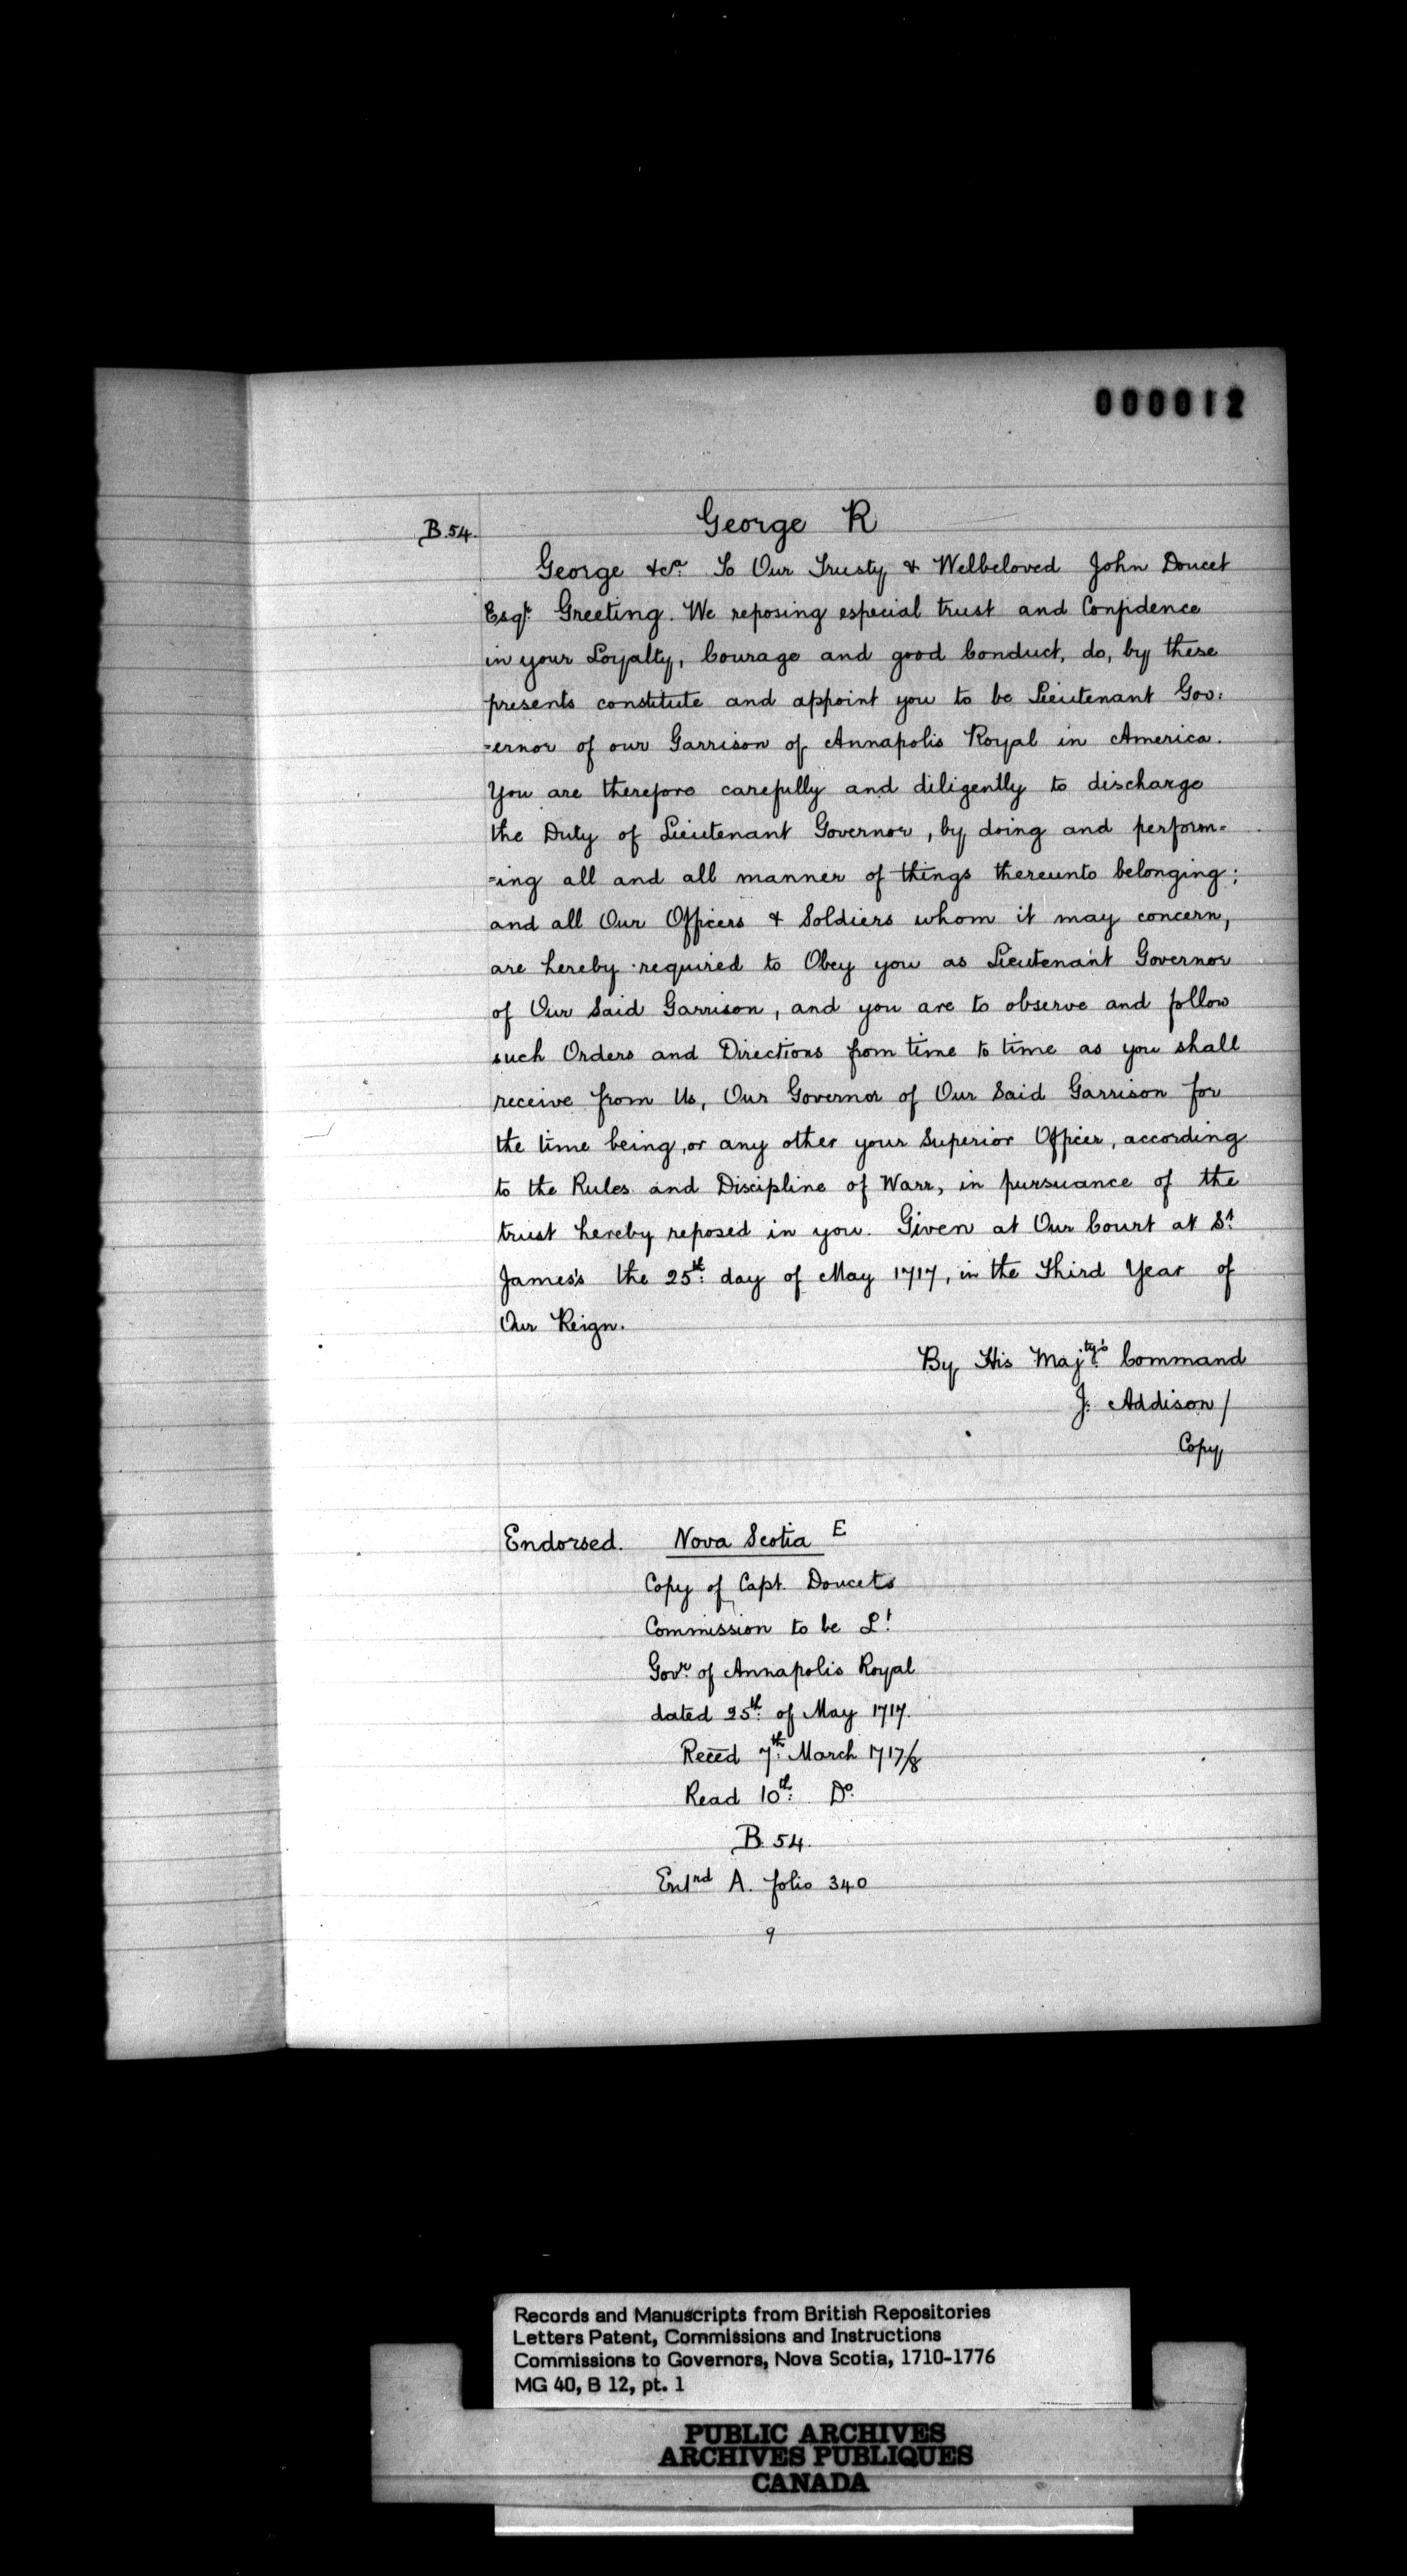 000012
B.54.
George R
George &cª. To Our Trusty & Welbeloved John Doucet
Esqr. Greeting. We reposing especial trust and Confidence
in your Loyalty, Courage and good Conduct, do, by these
presents constitute and appoint you to be Lieutenant Gov:
=ernor of our Garrison of Annapolis Royal in America.
You are therefore carefully and diligently to discharge
the Duty of Lieutenant Governor, by doing and perform=
=ing all and all manner of things thereunto belonging;
and all Our Officers & Soldiers whom it may concern,
are hereby required to Obey you as Lieutenant Governor
of Our Said Garrison, and you are to observe and follow
such Orders and Directions from time to time as you shall
receive from Us, Our Governor of Our Said Garrison for
the time being, or any other your Superior Officer, according
to the Rules and Discipline of Warr, in pursuance of the
trust hereby reposed in you. Given at Our Court at St.
James's the 25th. day of May 1717, in the Third Year of
Our Reign.
By His Majty's. Command
J. Addison /
Copy
Endorsed. Nova Scotia E
Copy of Capt. Doucets
Commission to be Lt.
Govr. of Annapolis Royal
dated 25th. of May 1717.
Recēd 7th. March 1717/8
Read 10th. Do.
B. 54.
Entrd A. folio 340
9
Records and Manuscripts from British Repositories
Letters Patent, Commissions and Instructions
Commissions to Governors, Nova Scotia, 1710-1776
MG 40, B 12, pt. 1
PUBLIC ARCHIVES
ARCHIVES PUBLIQUES
CANADA